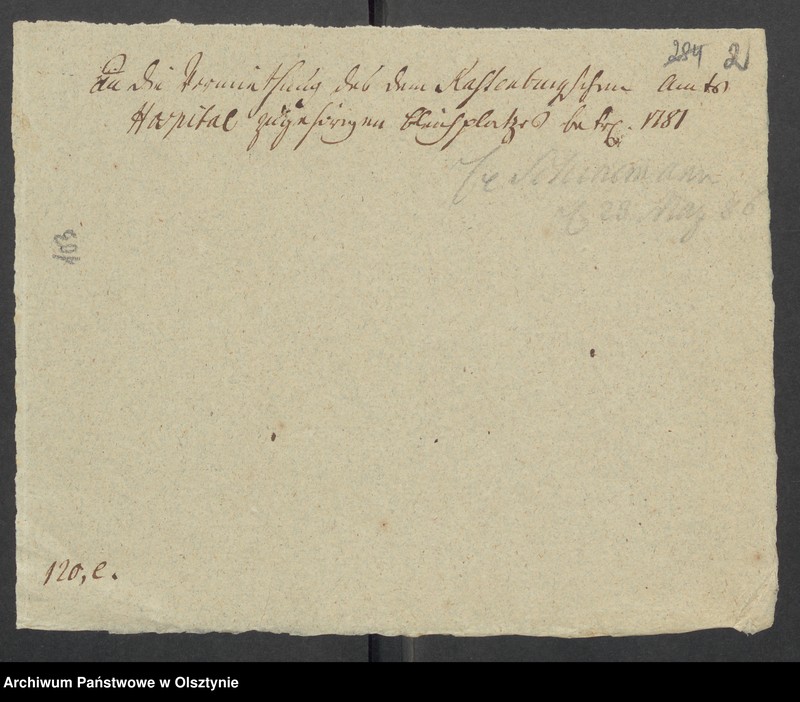 284 2
die Vermiethung des dem Rastenburgschen Amts
Hospital zugehörigen Bleichplatzes betr. 1781
Schinemann
23 May 86
103
120, e.
Archiwum Państwowe w Olsztynie